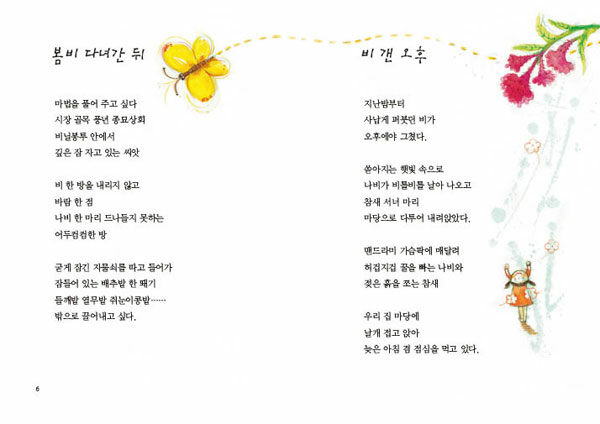 봄비 다녀간 뒤
마법을 풀어 주고 싶다
시장 골목 풍년 종묘상회
비닐봉투 안에서
깊은 잠 자고 있는 씨앗
비 한 방울 내리지 않고
바람 한 점
나비 한 마리 드나들지 못하는
어두컴컴한 방
굳게 잠긴 자물쇠를 따고 들어가
잠들어 있는 배추밭 한 뙈기
들깨밭 열무밭 쥐눈이콩밭……
밖으로 끌어내고 싶다.
6
비 갠 오후
지난밤부터
사납게 퍼붓던 비가
오후에야 그쳤다.
쏟아지는 햇빛 속으로
나비가 비틀비틀 날아 나오고
참새 서너 마리
마당으로 다투어 내려앉았다.
맨드라미 가슴팍에 매달려
허겁지겁 꿀을 빠는 나비와
젖은 흙을 쪼는 참새
우리 집 마당에
날개 접고 앉아
늦은 아침 겸 점심을 먹고 있다.